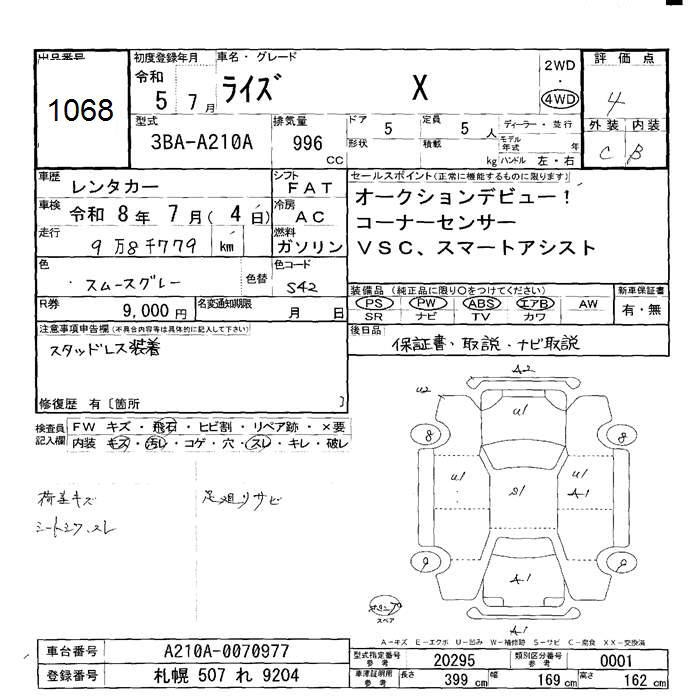 出品番号
1068
初度登録年月
令和
5年 7月
車名・グレード
ライズ X
2WD
・
4WD
評価点
4
外装 内装
C B
型式
3BA-A210A
排気量
996
CC
ドア
5
定員
5人
ディーラー・並行
形状
積載
kg
モデル年式
年
ハンドル 左・右
車歴
レンタカー
シフト
FAT
車検
令和 8年 7月(4日)
冷房
AC
走行
9万8千779 km
燃料
ガソリン
セールスポイント(正常に機能するものに限ります)
オークションデビュー!
コーナーセンサー
VSC、スマートアシスト
色
スムースグレー
色替
色コード
S42
装備品(純正品に限り○をつけてください)
PS PW ABS エアB AW
SR ナビ TV カワ
新車保証書
有・無
R券
9,000円
名変通知期限
月 日
後日品
保証書、取説、ナビ取説
注意事項申告欄(不具合内容等は具体的に記入して下さい)
スタッドレス装着
修復歴 有〔箇所 〕
検査員記入欄
FW キズ・飛石・ヒビ割・リペア跡・×要
内装 キズ・汚レ・コゲ・穴・スレ・キレ・破レ
荷差キズ
シートシワ、スレ
足廻リサビ
A2
U2
U1
8
8
U1
S1
U1
A1
9
9
A1
A1
スペア
A-キズ E-エクボ U-凹み W-補修跡 S-サビ C-腐食 XX-交換済
車台番号
A210A-0070977
登録番号
札幌 507 れ 9204
型式指定番号
参考
20295
類別区分番号
参考
0001
車庫証明用
参考
長さ
399 cm
幅
169 cm
高さ
162 cm